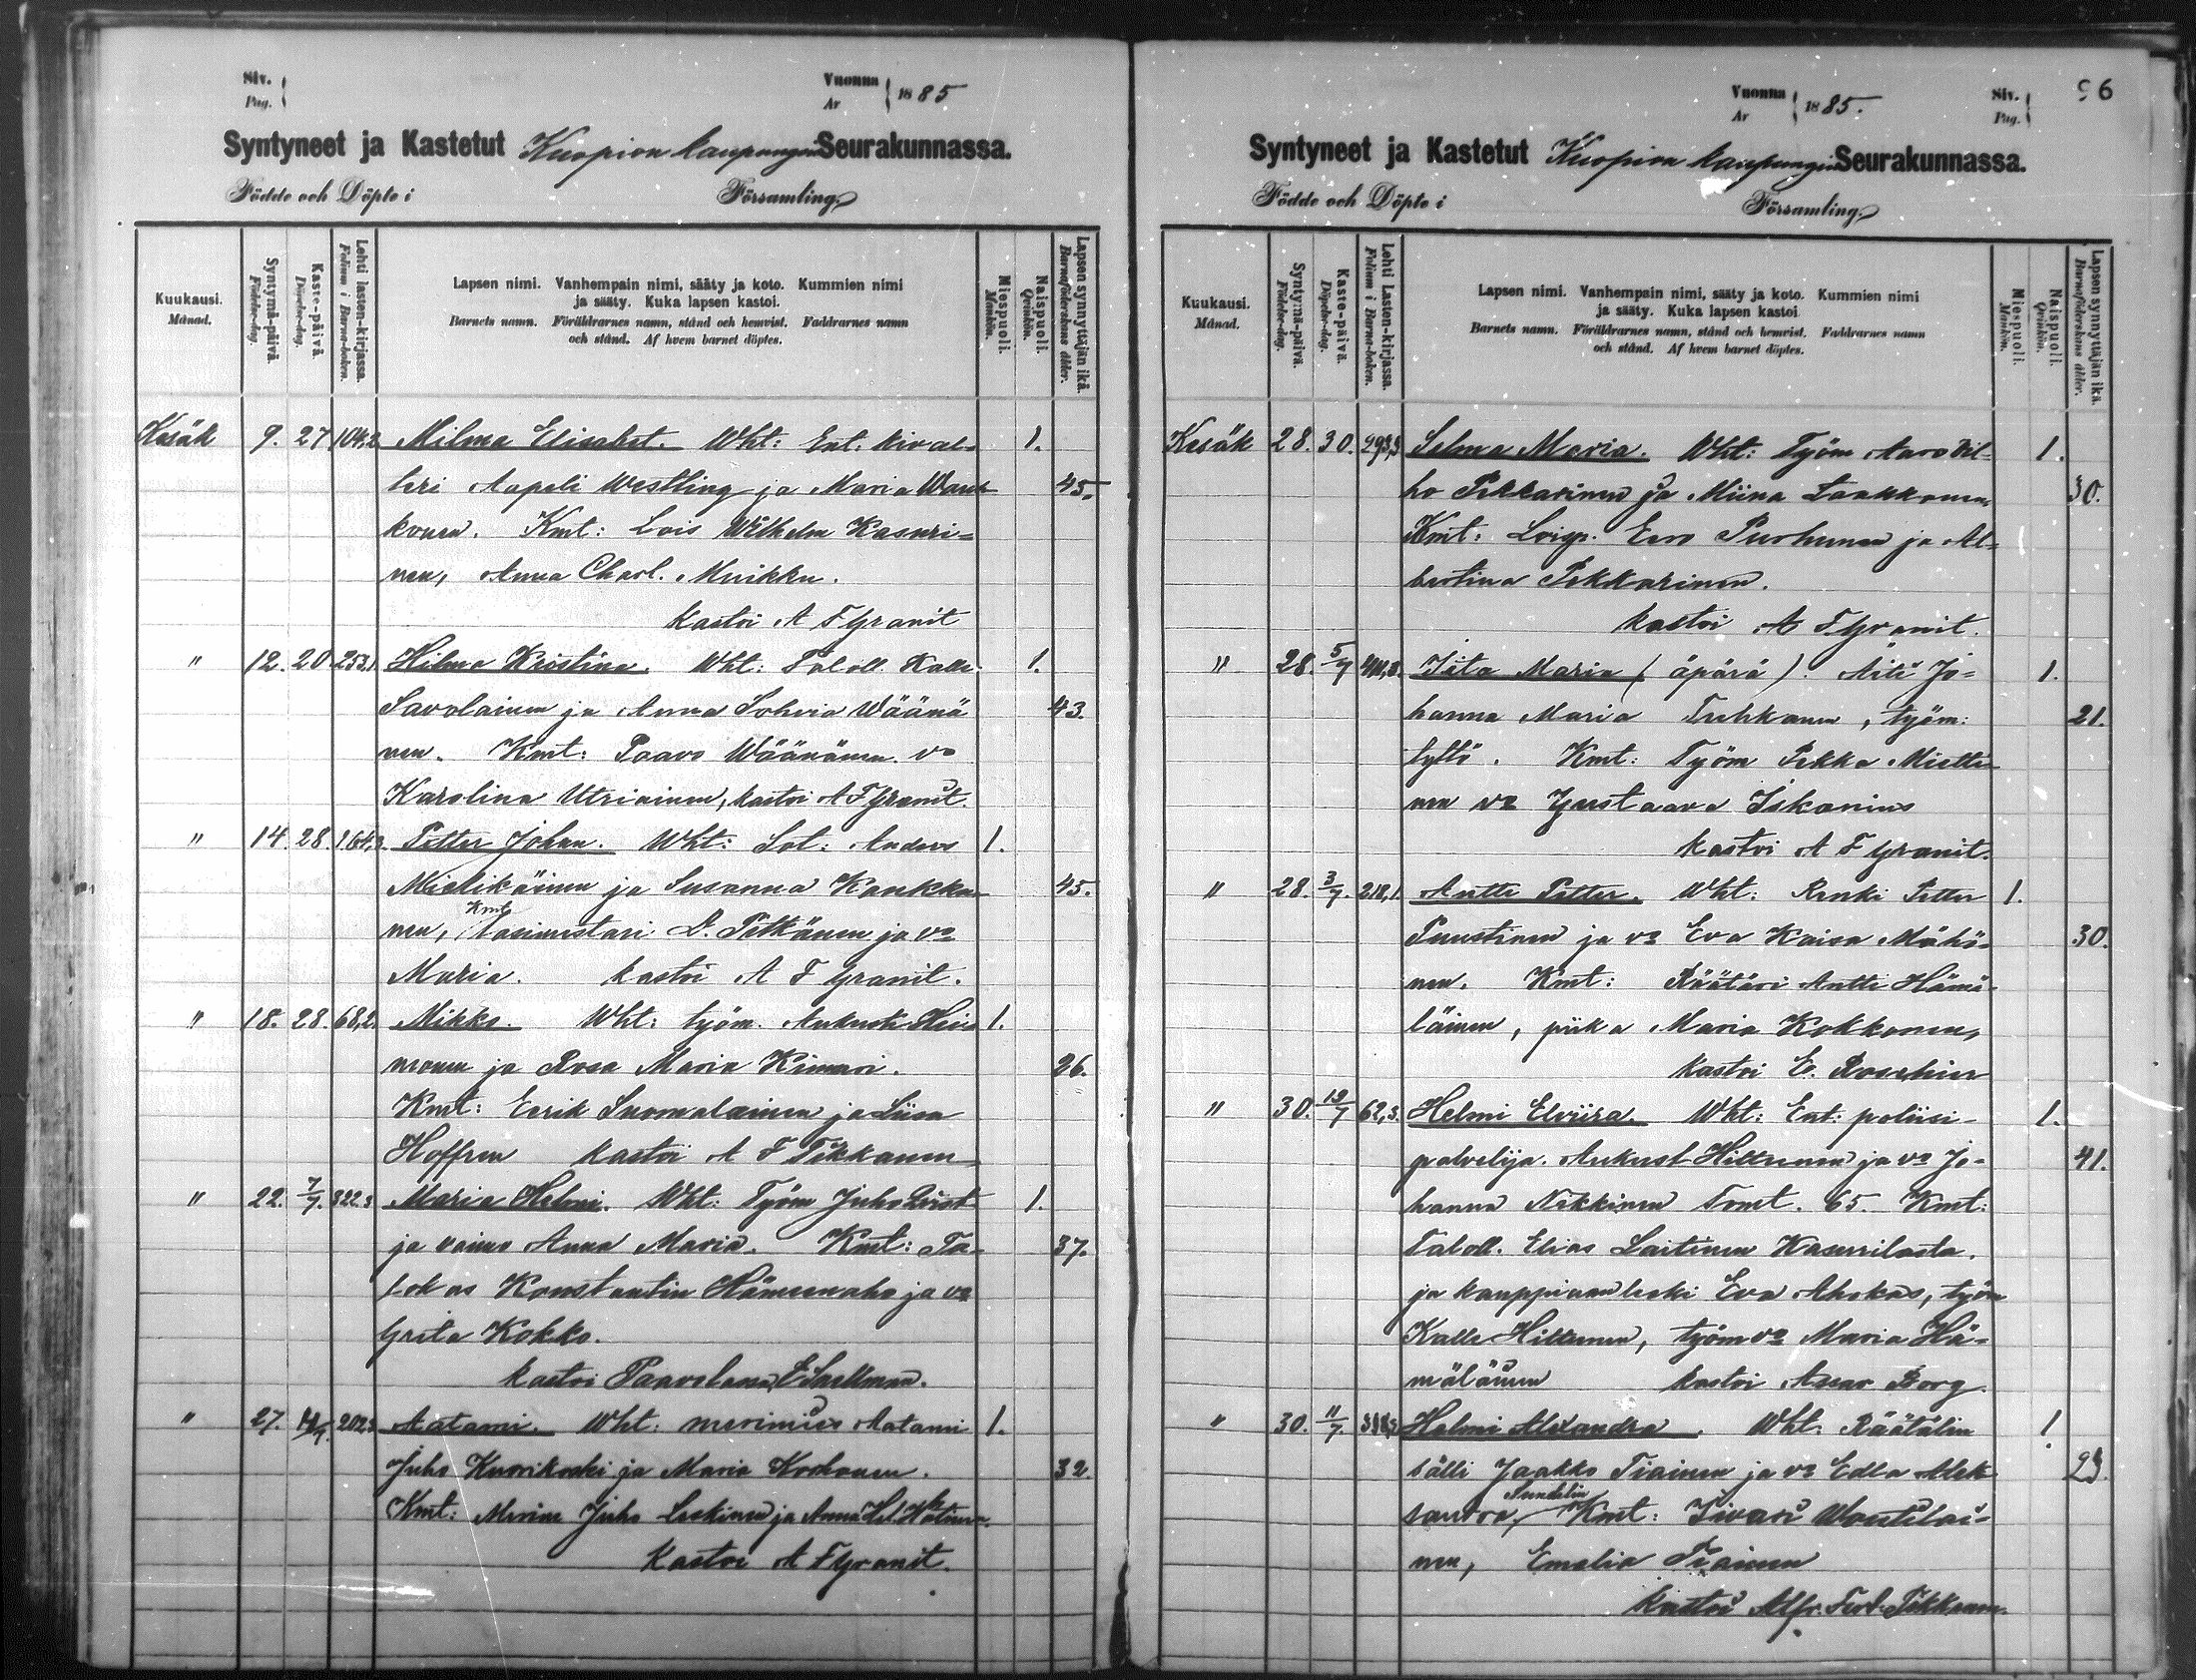 Siv.
Pag.
Vuonna
Ar
1885
Syntyneet ja Kastetut Kuopion kaupungin Seurakunnassa.
Födde och Döpte i Församling.
Kuukausi.
Månad.
Syntymä-päivä.
Födelse-dag.
Kaste-päivä.
Döpelse-dag.
Lehti lasten-kirjassa.
Folium i Barna-boken.
Lapsen nimi. Vanhempain nimi, sääty ja koto. Kummien nimi
ja sääty. Kuka lapsen kastoi.
Barnets namn. Föräldrarnes namn, stånd och hemvist. Faddrarnes namn
och stånd. Af hvem barnet döptes.
Miespuoli.
Mankön.
Naispuoli.
Qvinkön.
Lapsen synnyttäjän ikä.
Barnaföderskans ålder.
Kesäk 9. 27 104,2 Milma Elisabet. Wht: Ent. kival- 1.
teri Aapeli Westling ja Maria 45.
konen. Kmt: Lois Wilhelm Kasuri-
nen, Anna Charl. Muikku.
kastoi A F Granit
" 12. 20 253,1 Hilma Kristina. Wht: Taloll. Kalle 1.
Savolainen ja Anna Sohvia Wäänä 43.
nen. Kmt: Paavo Wäänänen vo
Karolina Utriainen, kastoi A F Granit.
" 14. 28. 164,3. Petter Johan. Wht: Sot: Anders 1.
Mielikäinen ja Susanna Kaukka- 45.
nen, Kmt lasimestari D. Pitkänen ja vo
Maria. kastoi A F Granit.
" 18. 28. 68,2. Mikko. Wht: työm. Aukusti Hei- 1.
nonen ja Rosa Maria Kimari. 26.
Kmt: Eerik Suomalainen ja Liisa
Hoffren kastoi A F Tikkanen
" 22. 7/7. 322.3 Maria Helmi. Wht: Työm Juho Qvist 1.
ja vaimo Anna Maria. Kmt: Ta- 37.
lokas Konstantin Hämeenaho ja vo
Greta Kokko.
kastoi E Saellman.
" 27. 202,3 Aatami. Wht: merimies Aatami 1.
Juho Kuorikoski ja Maria Korhonen. 32.
Kmt: Merim Juho Leskinen ja Anna Hel.
Kastoi A F Granit.
Vuonna
Ar
1885.
Siv.
Pag.
96
Syntyneet ja Kastetut Kuopion kaupungin Seurakunnassa.
Födde och Döpte i Församling.
Kuukausi.
Månad.
Syntymä-päivä.
Födelse-dag.
Kaste-päivä.
Döpelse-dag.
Lehti Lasten-kirjassa.
Folium i Barna-boken.
Lapsen nimi. Vanhempain nimi, sääty ja koto. Kummien nimi
ja sääty. Kuka lapsen kastoi.
Barnets namn. Föräldrarnes namn, stånd och hemvist. Faddrarnes namn
och stånd. Af hvem barnet döptes.
Miespuoli.
Mankön.
Naispuoli.
Qvinkön.
Lapsen synnyttäjän ikä.
Barnaföderskans ålder.
Kesäk 28. 30. 293,3 Selma Maria. Wht: Työm Aaro Vil- 1.
ho Pekkarinen ja Miina Laakkonen 30.
Kmt: Eero Purhunen ja Al-
bertina Pekkarinen.
kastoi A F Granit.
" 28. 5/7 Iita Maria (äpärä). Äiti Jo- 1.
hanna Maria Tuhkanen, työm: 21.
tyttö. Kmt: Työm Pekka Mietti-
nen vo Gustaava Iskanius
kastoi A F Granit.
" 28. 3/7. 218,1. Antti Petter. Wht: Renki Petter 1.
Puustinen ja vo Eva Kaisa Mähö- 30.
nen. Kmt: Räätäri Antti Hämä-
läinen, piika Maria Kokkonen,
kastoi E. Roschier
" 30. 12/7 62,3. Helmi Elviira. Wht: Ent. poliisi- 1.
palvelija. Aukust Hiltunen ja vo Jo- 41.
hanna Nikkinen Tomt. 65. Kmt:
Taloll. Elias Laitinen Kasurilasta.
ja kauppiaan leski Eva Ahokas, työm
Kalle Hiltunen, työm vo Maria Hä-
mäläinen kastoi Assar Borg.
" 30. 11/7 Helmi Alexandra. Wht: Räätälin 1.
sälli Jaakko Tiainen ja vo Edla Alek- 23.
sandra Sundelin, Kmt: Iivari Woutilai-
nen, Emalia Tiainen
kastoi Alfr. Ferd. Tikkanen.